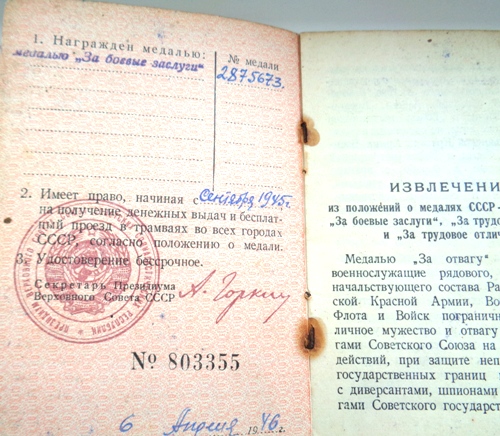 1. Награжден медалью:
№ медали
медалью „За боевые заслуги“
2875673.
2. Имеет право, начиная с Сентября 1945г.
на получение денежных выдач и бесплат-
ный проезд в трамваях во всех городах
СССР, согласно положению о медали.
3. Удостоверение бессрочное.
Секретарь Президиума
Верховного Совета СССР
А. Горкин
№ 803355
6 Апреля 1946 г.
ИЗВЛЕЧЕНИ
из положений о медалях СССР-
„За боевые заслуги“, „За трудо
и „За трудовое отли
Медалью „За отвагу“
военнослужащие рядового,
начальствующего состава Ра
ской Красной Армии, Во
Флота и Войск погранич
личное мужество и отвагу
гами Советского Союза на
действий, при защите неп
государственных границ
с диверсантами, шпионами
гами Советского государст